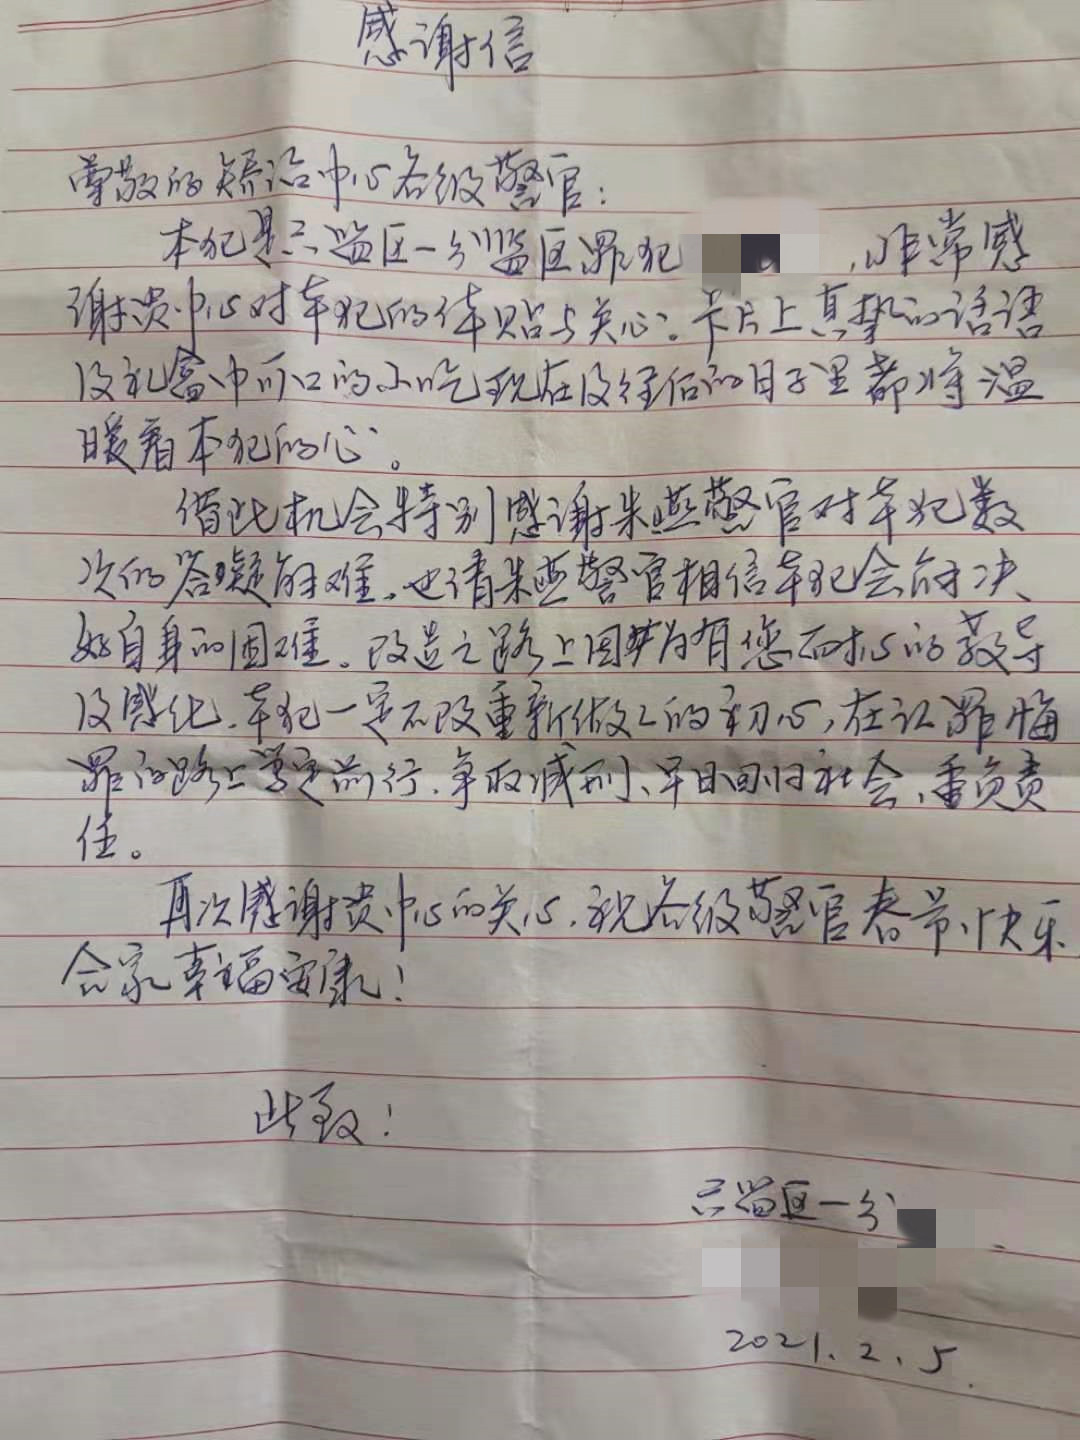 感谢信
尊敬的矫治中心各级警官：
本犯是六监区一分监区罪犯，非常感
谢贵中心对本犯的体贴与关心。卡片上真挚的话语
及礼盒中可口的小吃现在及往后的日子里都将温
暖着本犯的心。
借此机会特别感谢朱燕警官对本犯数
次的答疑解难。也请朱燕警官相信本犯会解决
好自身的困难。改造之路上因为有您耐心的教导
及感化，本犯一定不改重新做人的初心，在认罪悔
罪的路上坚定前行，争取减刑、早日回归社会，重负责
任。
再次感谢贵中心的关心，祝各级警官春节快乐
合家幸福安康！
此致！
六监区一分
2021.2.5.